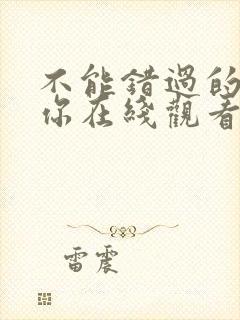 不能错過的
你在綫觀看
雷震